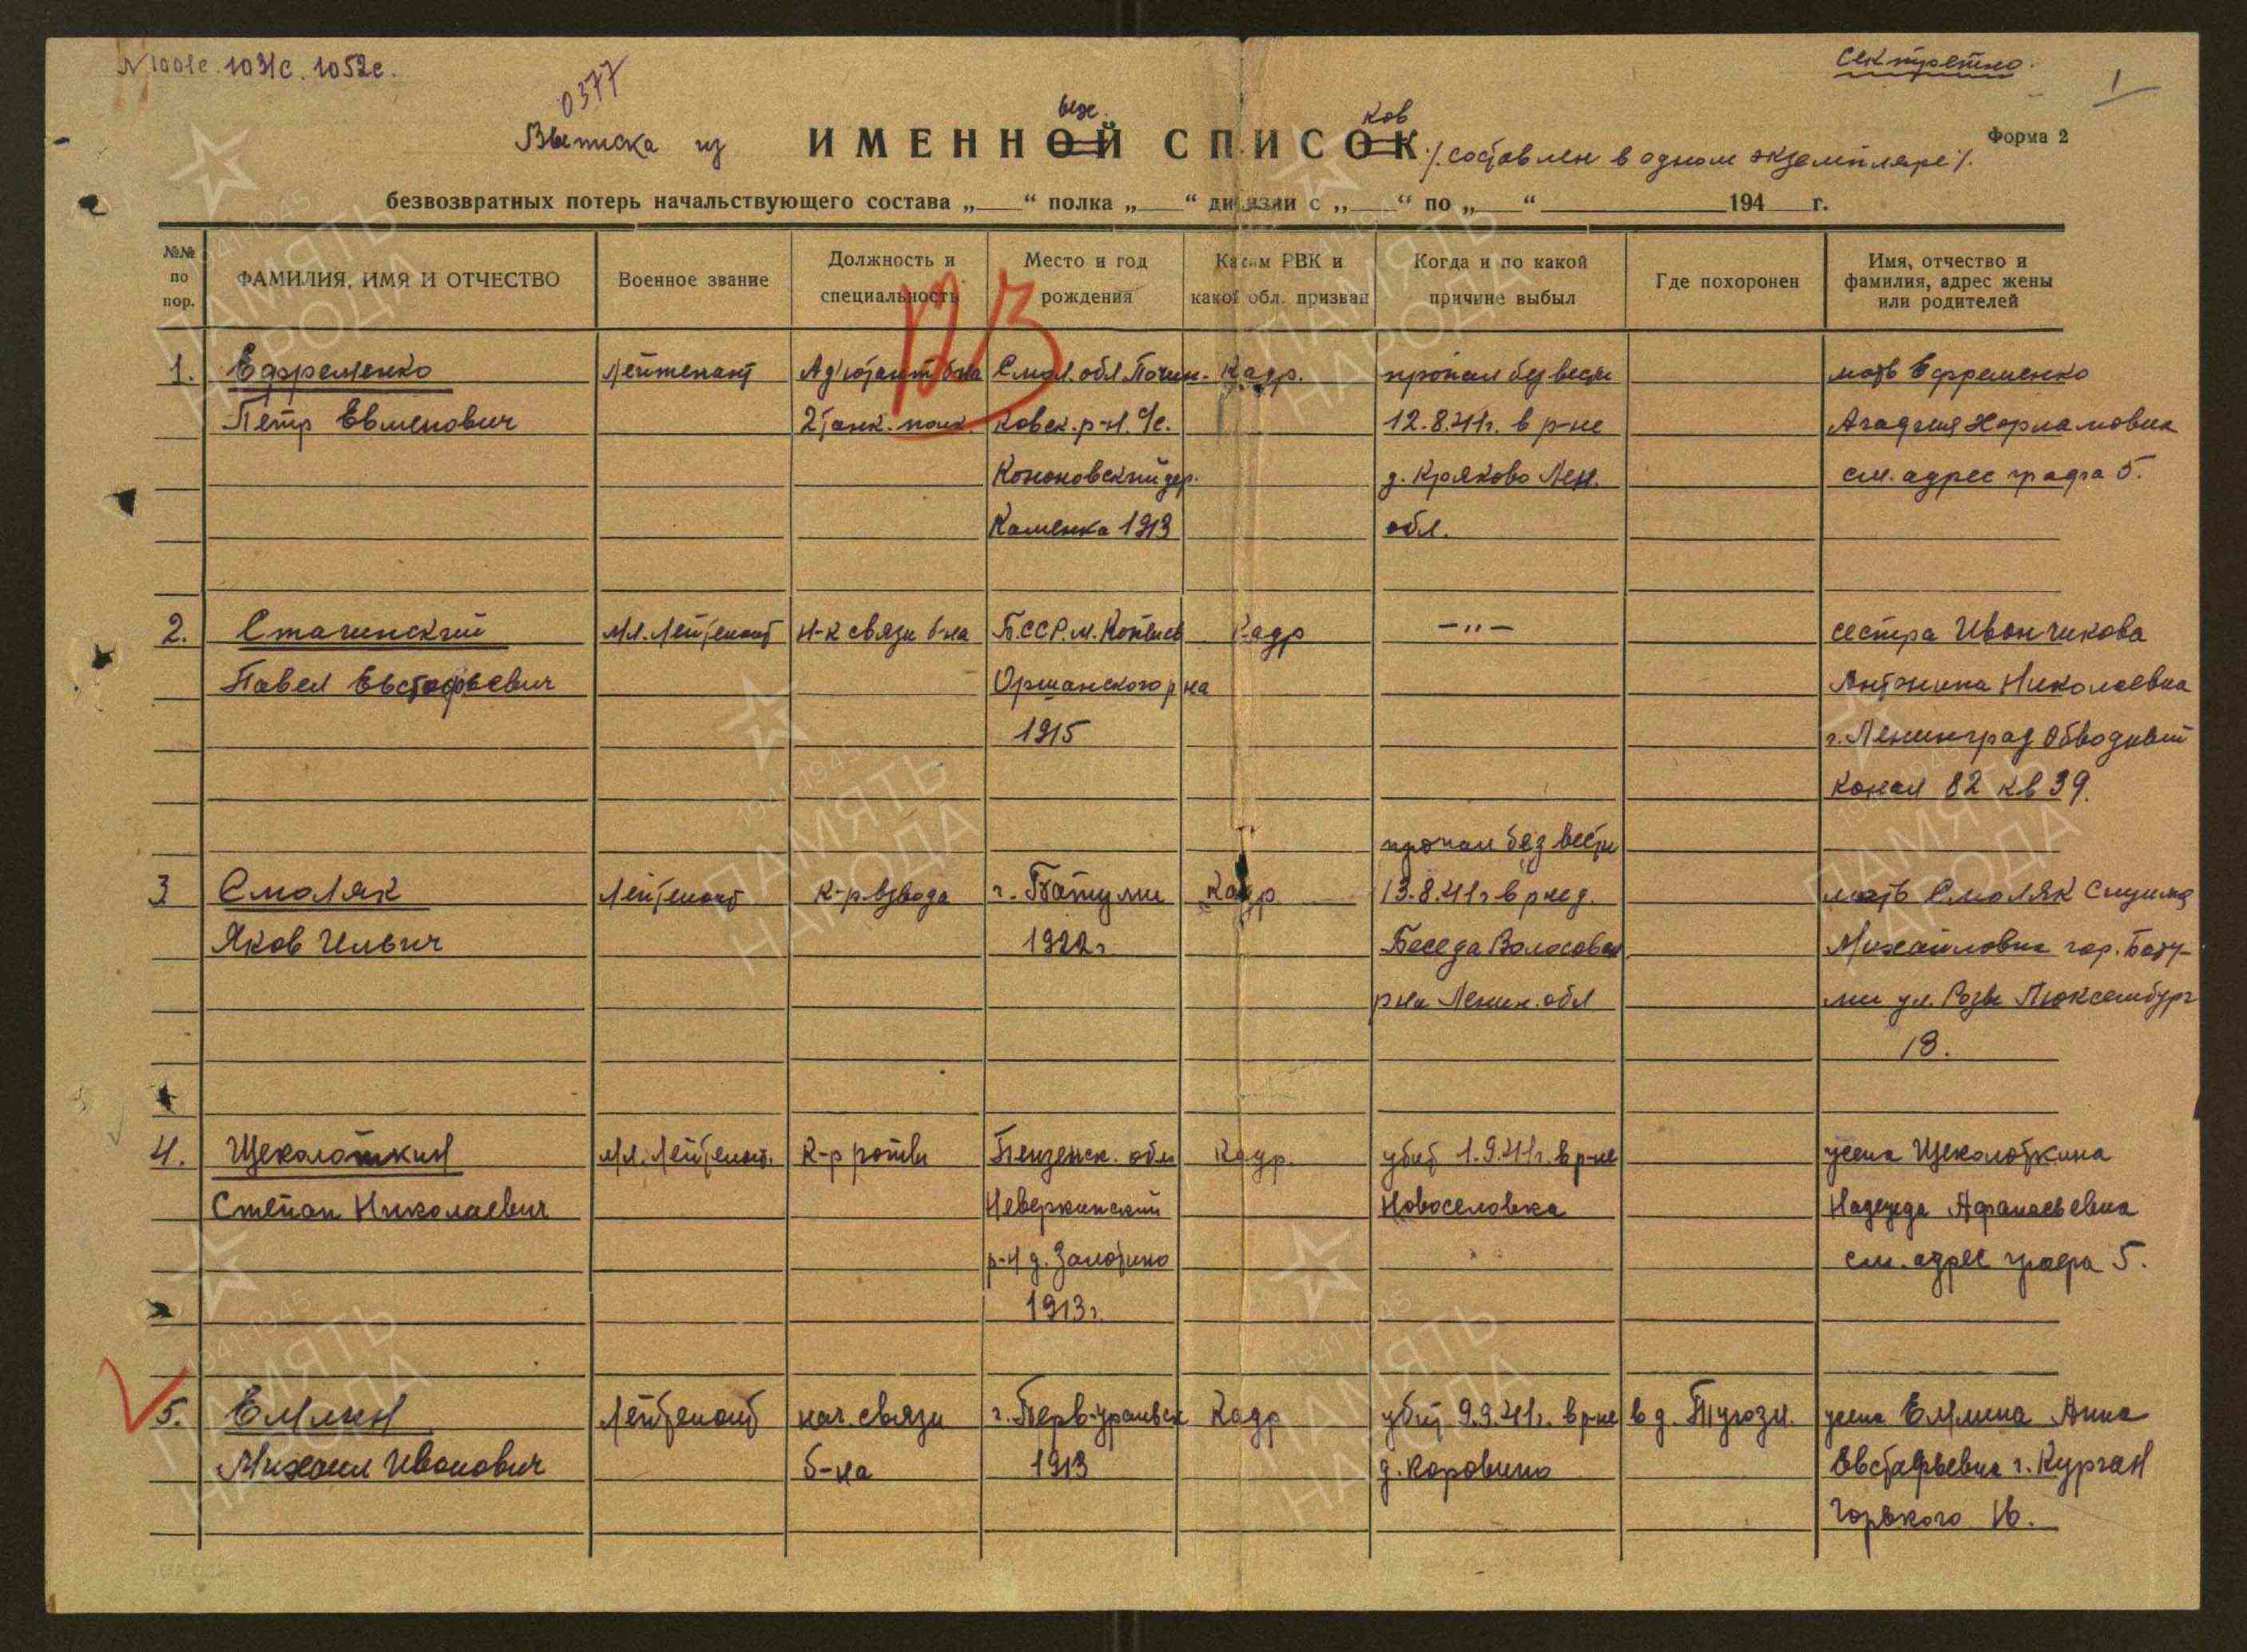 N 1001с. 1031с. 1052с.
0377
Секретно.
1
Выписка из ИМЕННОЙ ых СПИСОК ков /составлен в одном экземпляре/.
Форма 2
безвозвратных потерь начальствующего состава „ “ полка „ “ дивизии с „ “ по „ “ 194 г.
№№ по пор.
ФАМИЛИЯ, ИМЯ И ОТЧЕСТВО
Военное звание
Должность и специальность
Место и год рождения
Каким РВК и какой обл. призван
Когда и по какой причине выбыл
Где похоронен
Имя, отчество и фамилия, адрес жены или родителей
1. Ефременко Лейтенант Адъютант б-на Смол. обл Почин- Кадр. пропал без вести мать Ефременко
Петр Евменович 2 танк. полк. ковск. р-н. с/с. 12.8.41г. в р-не Харламовна
Кононовский дер. д. Кряково Лен. см. адрес графа 5.
Каменка 1913 обл.
2. Стачинский Мл. Лейтенант Н-к связи б-на БССР. м. Копысь Кадр -"- сестра Иванчикова
Павел Евстафьевич Оршанского р на Антонина Николаевна
1915 г. Ленинград Обводный
канал 82 кв 39.
пропал без вести
3 Смоляк Лейтенант К-р взвода г. Батуми Кадр 13.8.41г в р не д. мать Смоляк
Яков Ильич 1922г Беседа Волосовск Михайловна гор. Бату-
р на Ленин. обл ми ул. Розы Люксембург
13.
4. Щеколоткин Мл. Лейтенант. К-р роты Пензенск. обл Кадр. убит 1.9.41г. в р-не жена Щеколоткина
Степан Николаевич Неверкинский Новоселовка Надежда Афанасьевна
р-н д. см. адрес графа 5.
1913г.
5. Емлин Лейтенант нач. связи г. Первоуральск Кадр убит 9.9.41г. в р-не в д. жена Емлина Анна
Михаил Иванович б-на 1913 д. Коровино Евстафьевна г. Курган
Горького 16.
ПАМЯТЬ НАРОДА
1941-1945